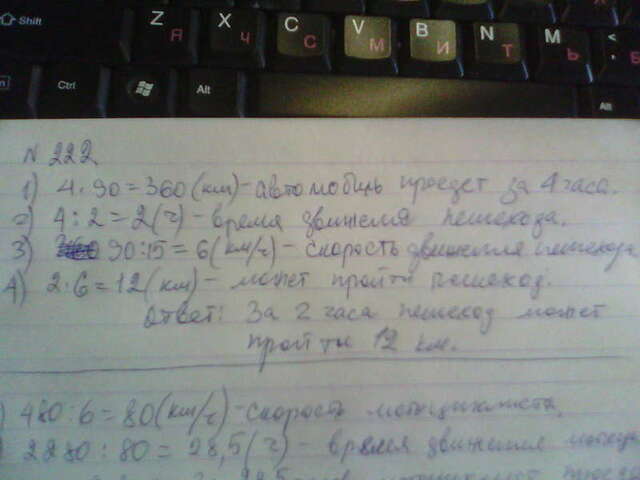 Shift
Z Я
X Ч
C С
V М
B И
N Т
M Ь
<
Ctrl
Alt
Alt
N 222
1) 4·90=360(км)-автомобиль проедет за 4 часа.
2) 4:2=2(ч)-время движения пешехода.
3) 90:15=6(км/ч)-скорость движения пешехода
4) 2·6=12(км)-может пройти пешеход.
Ответ: За 2 часа пешеход может
пройти 12 км.
) 480:6=80(км/ч)-скорость мотоциклиста.
2280:80=28,5(ч)-время движения мотоци